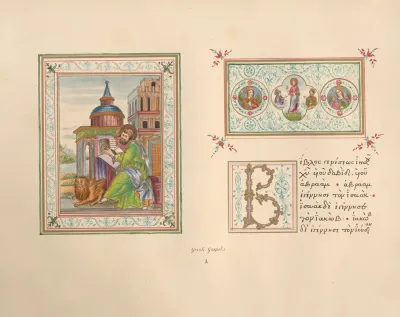 Β
ίβλος γενέσεως ἰυ
χυ υἱοῦ δαβὶδ υἱοῦ
ἀβραάμ · ἀβραὰμ
ἐγέννησε τὸν ἰσαάκ
ἰσαὰκ δὲ ἐγέννησε
τὸν ἰακώβ · ἰακὼβ
δὲ ἐγέννησε τὸν ἰούδαν